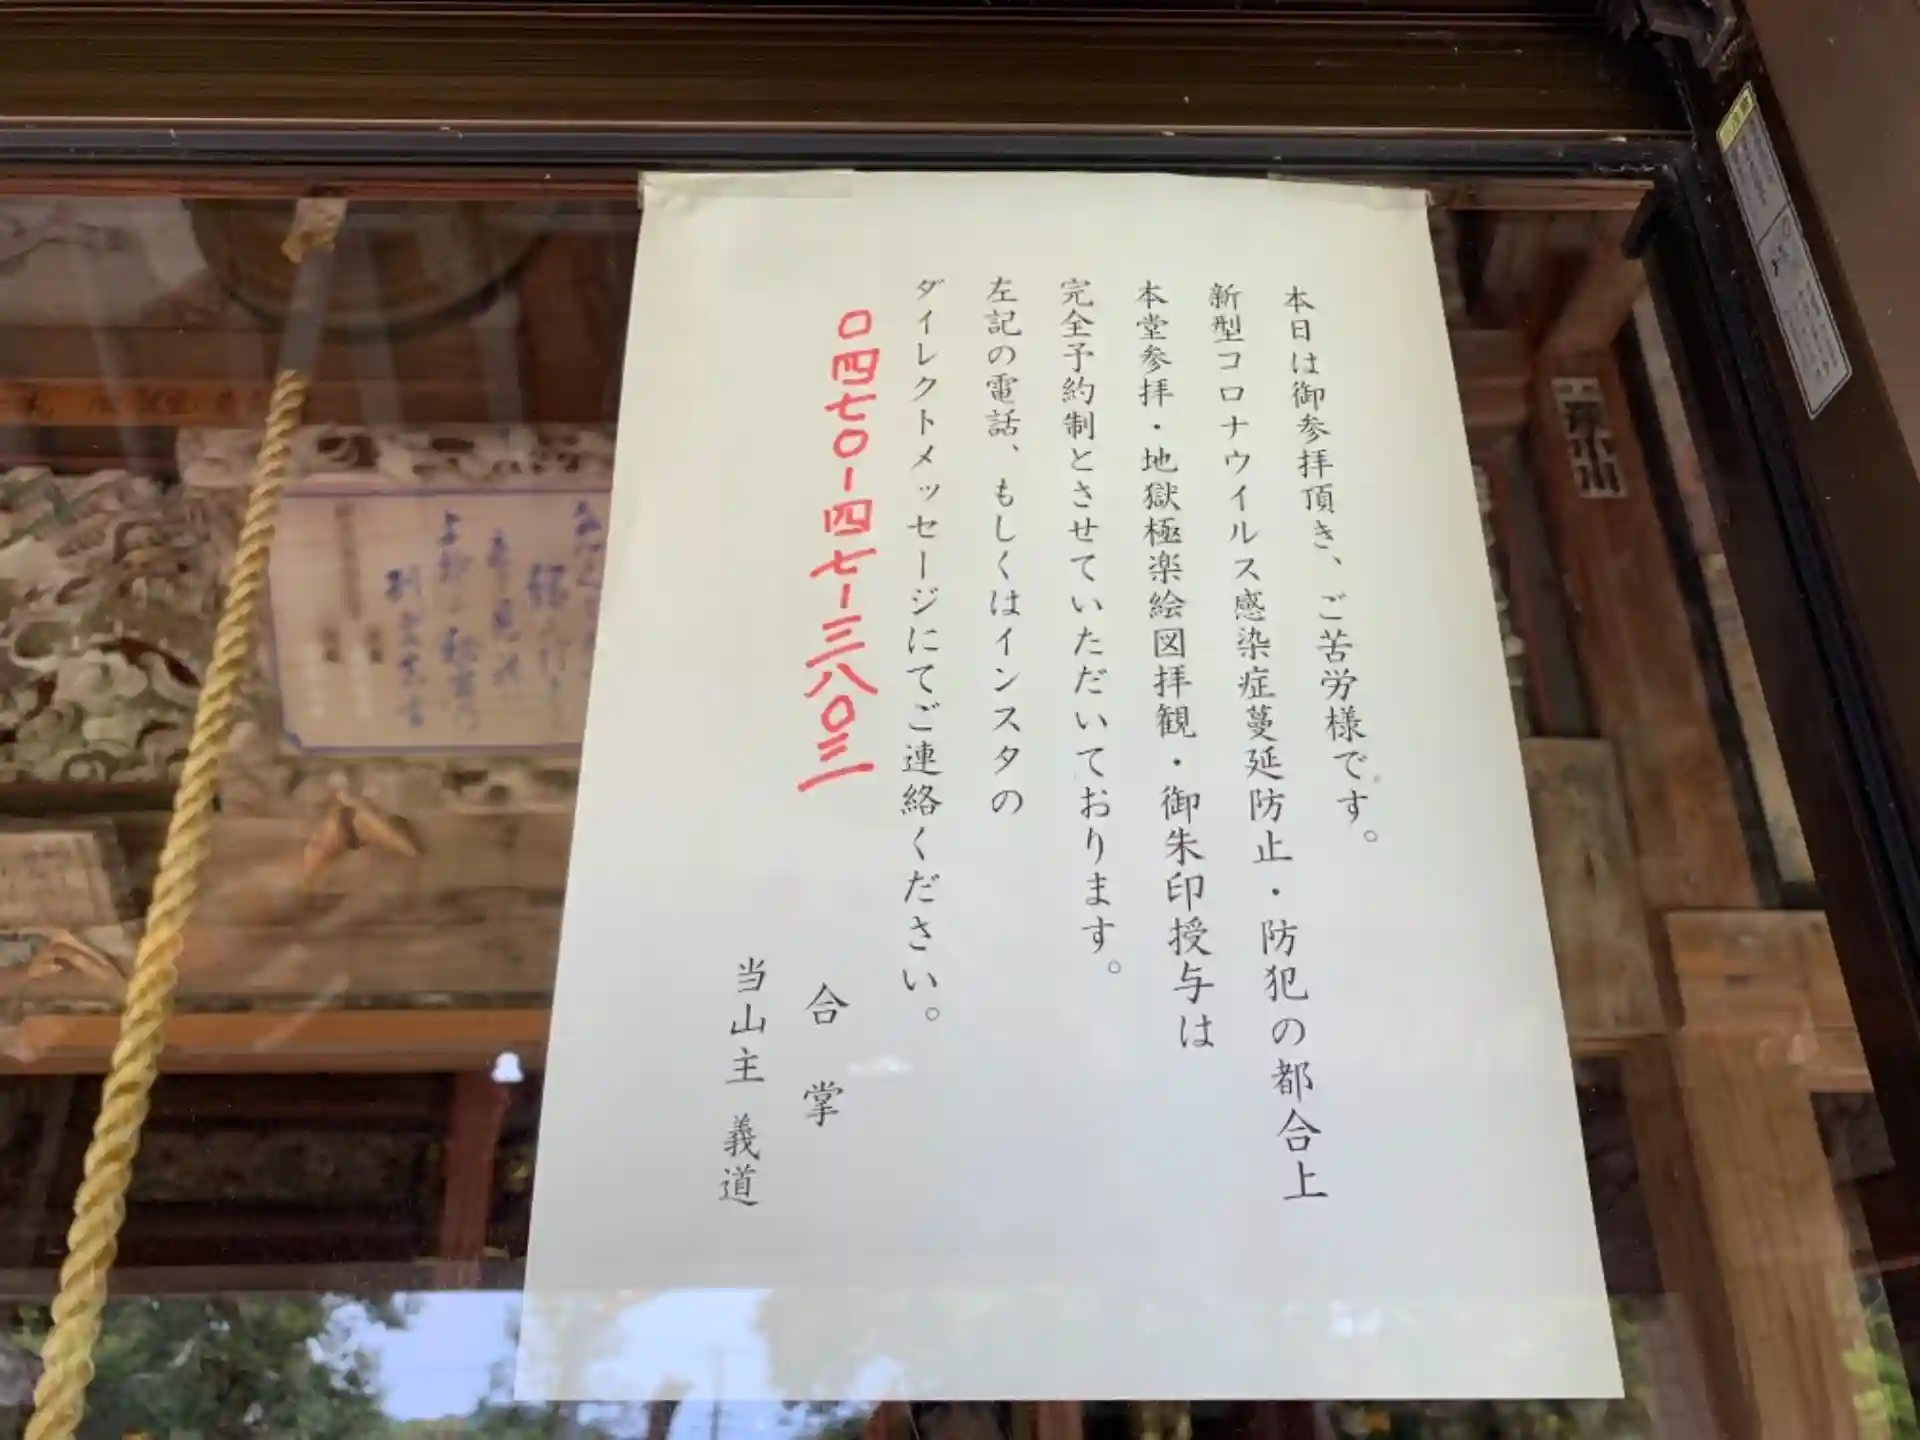 本日は御参拝頂き、ご苦労様です。
新型コロナウイルス感染症蔓延防止・防犯の都合上
本堂参拝・地獄極楽絵図拝観・御朱印授与は
完全予約制とさせていただいております。
左記の電話、もしくはインスタの
ダイレクトメッセージにてご連絡ください。
〇四七〇-四七-三八〇三
合掌
当山主 義道